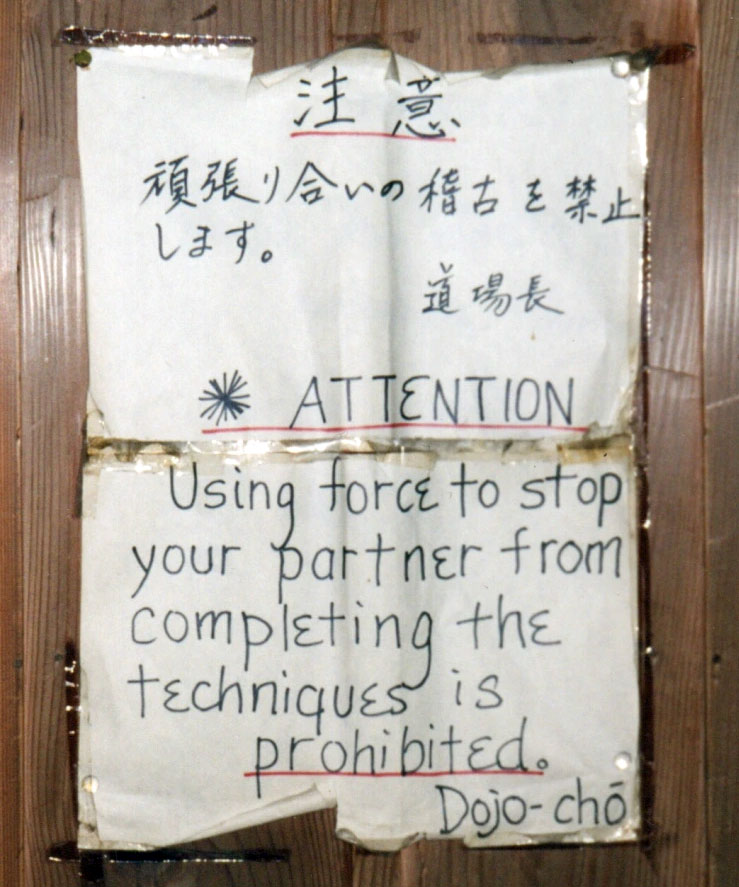 注意
頑張り合いの稽古を禁止
します。
道場長
✳ ATTENTION
Using force to stop
your partner from
completing the
techniques is
prohibited.
Dojo-chō